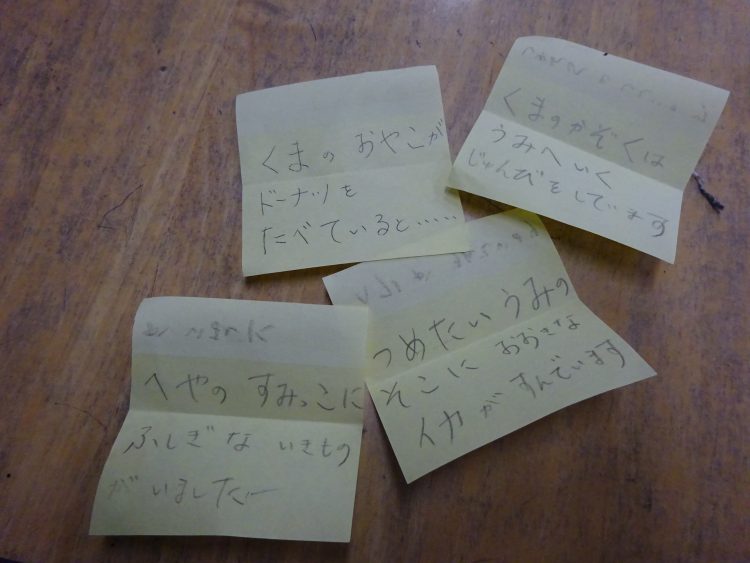 くまのおやこが
ドーナツを
たべていると……
くまのかぞくは
うみへいく
じゅんびをしています
つめたいうみの
そこにおおきな
イカがすんでいます
へやのすみっこに
ふしぎないきもの
がいました